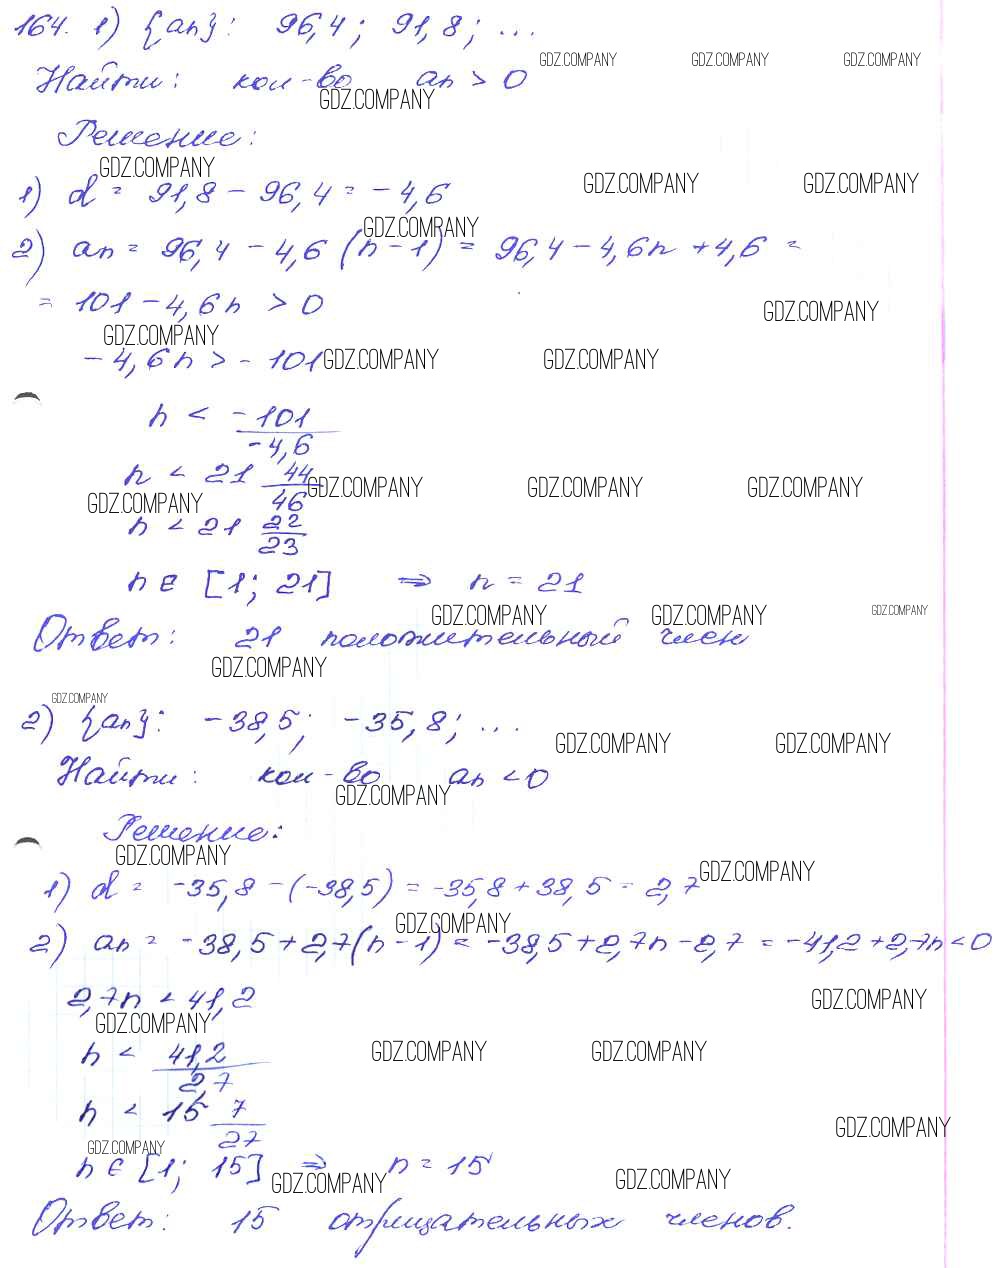 164. 1) {an}: 96,4; 91,8; ...
GDZ.COMPANY GDZ.COMPANY GDZ.COMPANY
Найти: кол-во an > 0
GDZ.COMPANY
Решение:
GDZ.COMPANY
1) d = 91,8 - 96,4 = -4,6
GDZ.COMPANY GDZ.COMPANY
GDZ.COMPANY
2) an = 96,4 - 4,6 (n-1) = 96,4 - 4,6n + 4,6 =
= 101 - 4,6n > 0
GDZ.COMPANY
GDZ.COMPANY
-4,6n > -101
GDZ.COMPANY GDZ.COMPANY
n < -101
-4,6
n < 21 44
46
GDZ.COMPANY GDZ.COMPANY GDZ.COMPANY
GDZ.COMPANY
n < 21 22
23
n ∈ [1; 21] ⇒ n = 21
GDZ.COMPANY GDZ.COMPANY GDZ.COMPANY
Ответ: 21 положительный член
GDZ.COMPANY
GDZ.COMPANY
2) {an}: -38,5; -35,8; ...
GDZ.COMPANY GDZ.COMPANY
Найти: кол-во an < 0
GDZ.COMPANY
Решение:
GDZ.COMPANY GDZ.COMPANY
1) d = -35,8 - (-38,5) = -35,8 + 38,5 = 2,7
GDZ.COMPANY
2) an = -38,5 + 2,7(n-1) = -38,5 + 2,7n - 2,7 = -41,2 + 2,7n < 0
2,7n < 41,2
GDZ.COMPANY
GDZ.COMPANY
n < 41,2
2,7
GDZ.COMPANY GDZ.COMPANY
n < 15 7
27
GDZ.COMPANY
GDZ.COMPANY
n ∈ [1; 15] ⇒ n = 15
GDZ.COMPANY GDZ.COMPANY
Ответ: 15 отрицательных членов.